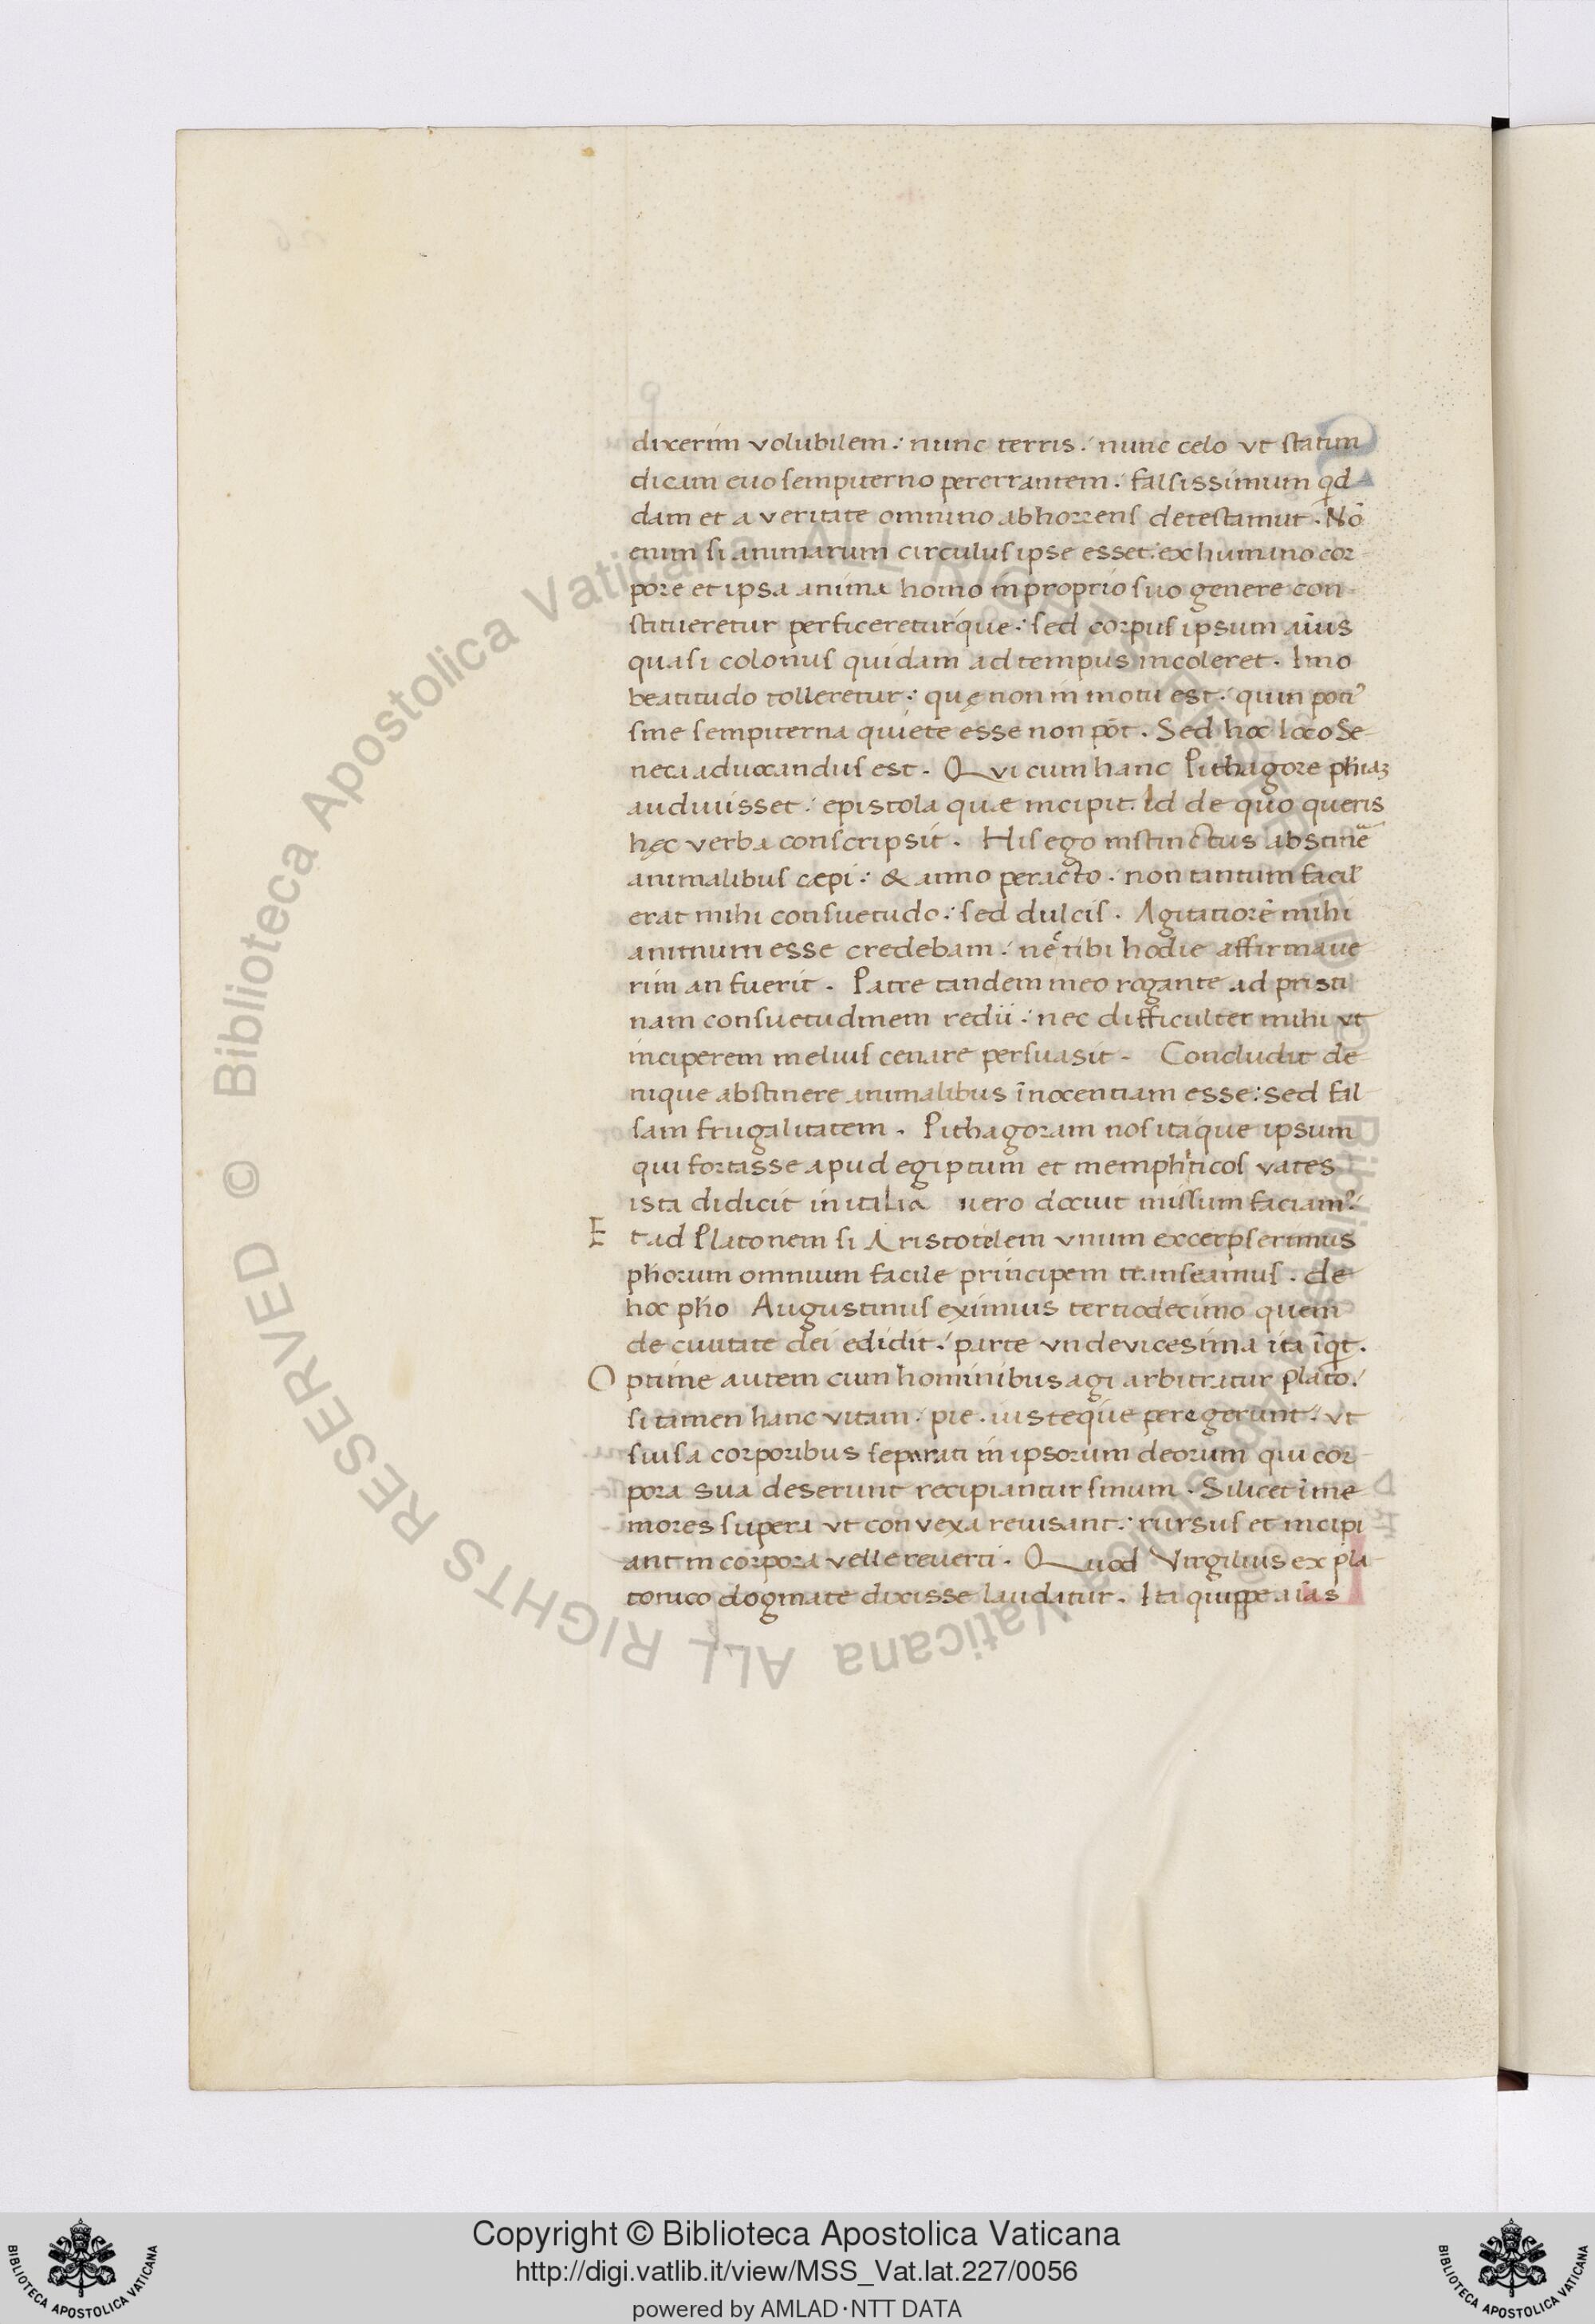 dixerim volubilem: nunc terris: nunc celo vt statim
dicam euo sempiterno pererrantem. falsissimum qd
dam et a veritate omnino abhorrens detestamur. Nō
enim si animarum circulus ipse esset: ex humano cor
pore et ipsa anima homo in proprio suo genere con
stitueretur perficereturque: sed corpus ipsum aīus
quasi colonus quidam ad tempus incoleret. Imo
beatitudo tolleretur: quę non in motu est: quin poti⁹
sine sempiterna quiete esse non pōt. Sed hoc loco Se
neca aduocandus est. Qui cum hanc Pithagore phīaꝫ
audiuisset: epistola quae incipit. Id de quo queris
hęc verba conscripsit. His ego instinctus abstinē
animalibus caepi: & anno peracto. non tantum facil
erat mihi consuetudo: sed dulcis. Agitatiorē mihi
animum esse credebam: nec tibi hodie affirmaue
rim an fuerit. Patre tandem meo rogante ad pristi
nam consuetudinem redii: nec difficulter mihi vt
inciperem melius cenare persuasit. Concludit de
nique abstinere animalibus īnocentiam esse: sed fal
sam frugalitatem. Pithagoram nos itaque ipsum
qui fortasse apud egiptum et memphiticos vates
ista didicit in italia uero docuit missum faciam⁹:
Et ad Platonem si Aristotelem vnum excerpserimus
phōrum omnium facile principem transeamus. de
hoc phō Augustinus eximius tertiodecimo quem
de ciuitate dei edidit: parte vndevicesima ita īqt.
Optime autem cum hominibus agi arbitratur plato:
si tamen hanc vitam: pie. iusteque peregerunt: vt
suis a corporibus separati in ipsorum deorum qui cor
pora sua deserunt recipiantur sinum. Silicet īme
mores supera vt convexa reuisant: rursus et incipi
ant in corpora velle reuerti. Quod Virgilius ex pla
tonico dogmate dixisse laudatur. Ita quippe aīas
© Biblioteca Apostolica Vaticana ALL RIGHTS RESERVED © Biblioteca Apostolica Vaticana ALL RIGHTS RESERVED
Copyright © Biblioteca Apostolica Vaticana
http://digi.vatlib.it/view/MSS_Vat.lat.227/0056
powered by AMLAD·NTT DATA
BIBLIOTECA APOSTOLICA VATICANA
BIBLIOTECA APOSTOLICA VATICANA